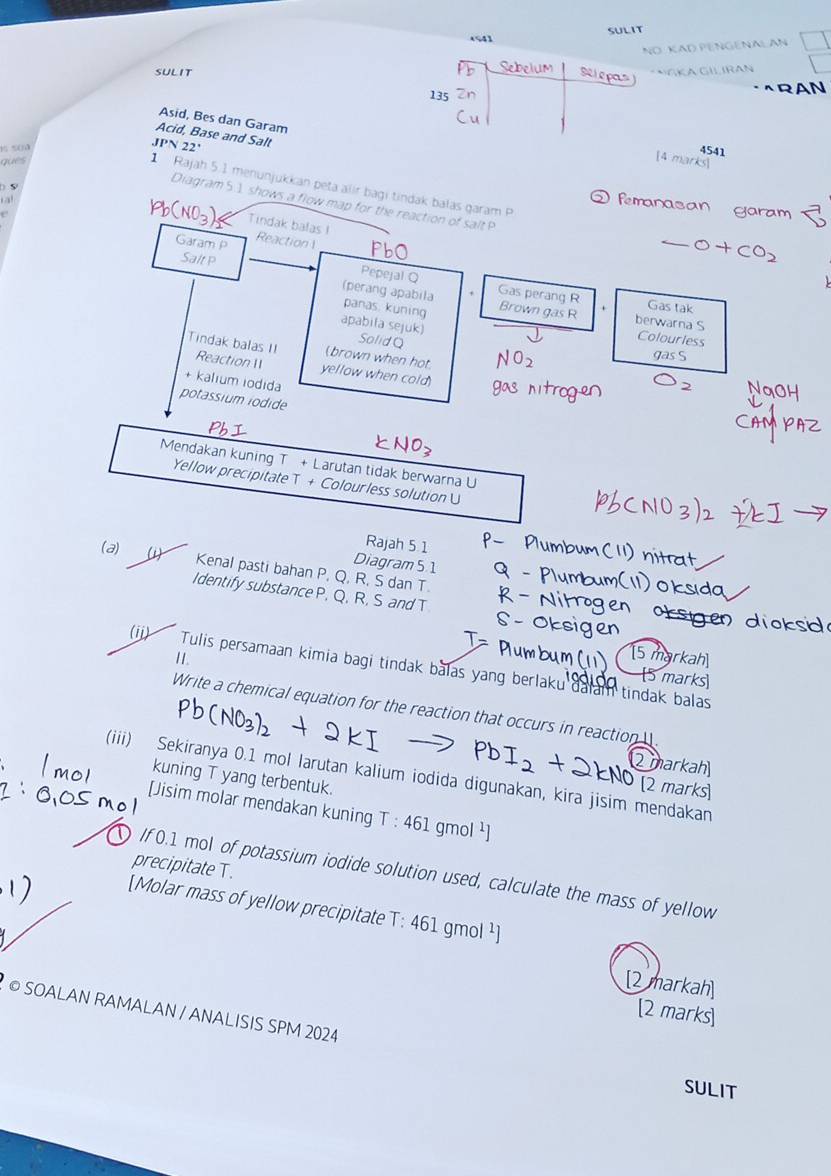 SULIT
4541
NO. KAD PENGENALAN
SULIT
Pb Sebelum selepas
GILIRAN
135 Zn
RAN
Cu
Asid, Bes dan Garam
Acid, Base and Salt
JPN 22'
4541
[4 marks]
ques
1 Rajah 5.1 menunjukkan peta alir bagi tindak balas garam P
Diagram 5.1 shows a flow map for the reaction of salt P
② Pemanasan garam
Pb(NO3)2
- O + CO2
Tindak balas I
Reaction I
Garam P
Salt P
PbO
Pepejal Q
(perang apabila
panas, kuning
apabila sejuk)
Solid Q
(brown when hot,
yellow when cold)
+
Gas perang R
Brown gas R
+
Gas tak
berwarna S
Colourless
gas S
NO2
gas nitrogen
O2
NaOH
CAMPAZ
Tindak balas II
Reaction II
+ kalium iodida
potassium iodide
PbI
KNO3
Mendakan kuning T + Larutan tidak berwarna U
Yellow precipitate T + Colourless solution U
Pb(NO3)2 + KI →
Rajah 5.1
Diagram 5.1
(a) (i) Kenal pasti bahan P, Q, R, S dan T.
Identify substance P, Q, R, S and T
P- Plumbum (II) nitrat
Q - Plumbum (II) oksida
R - Nitrogen oksigen dioksid
S- Oksigen
T= Plumbum (II) iodida
[5 markah]
[5 marks]
(ii) Tulis persamaan kimia bagi tindak balas yang berlaku dalam tindak balas
II.
Write a chemical equation for the reaction that occurs in reaction II.
Pb(NO3)2 + 2KI → PbI2 + 2KNO
[2 markah]
[2 marks]
(iii) Sekiranya 0.1 mol larutan kalium iodida digunakan, kira jisim mendakan
kuning T yang terbentuk.
[Jisim molar mendakan kuning T : 461 gmol ¹]
1 mol
: 0,05 mol
① If 0.1 mol of potassium iodide solution used, calculate the mass of yellow
precipitate T.
[Molar mass of yellow precipitate T: 461 gmol ¹]
[2 markah]
[2 marks]
© SOALAN RAMALAN / ANALISIS SPM 2024
SULIT